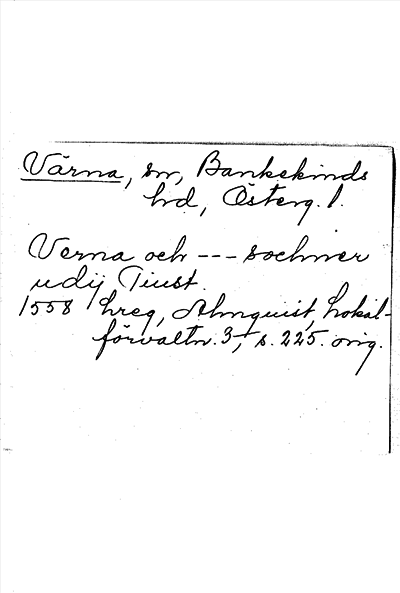 Värna, sn, Bankekinds
hd, Österg. l.
Verna och --- sochner
udij Tiust.
1558 hreg, Almquist, Lokal-
förvaltn. 3, s. 225. orig.